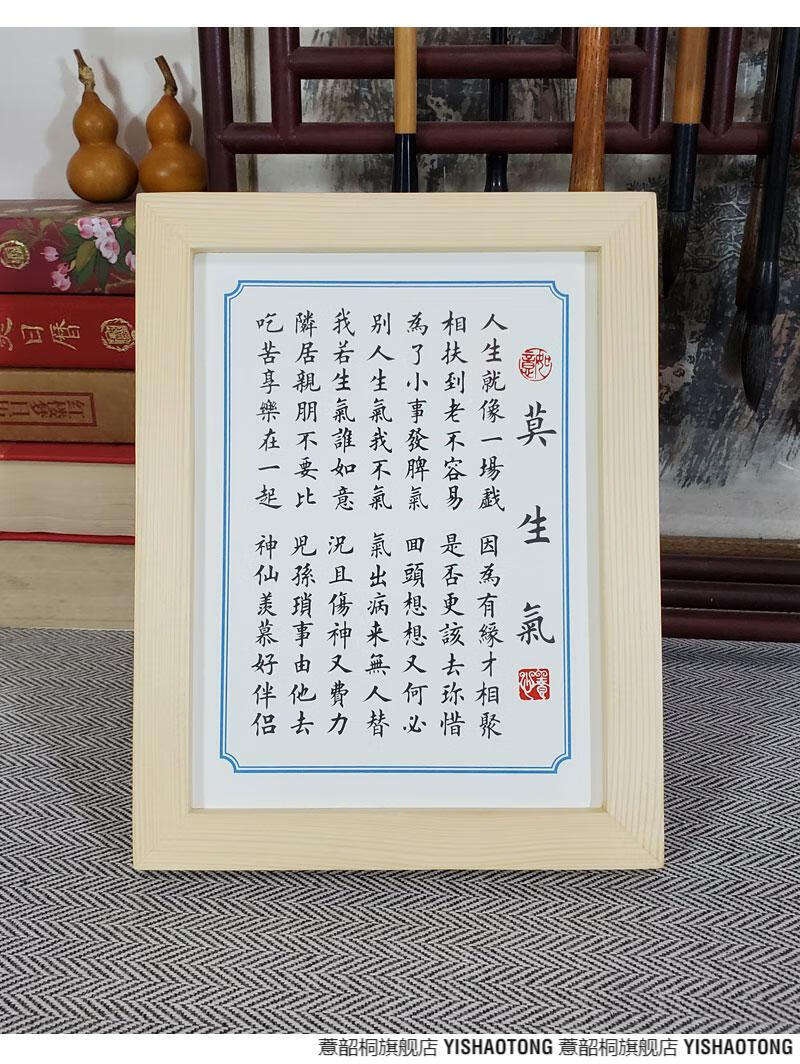 莫生氣
人生就像一場戲 因為有緣才相聚
相扶到老不容易 是否更該去珎惜
為了小事發脾氣 回頭想想又何必
別人生氣我不氣 氣出病来無人替
我若生氣誰如意 況且傷神又費力
隣居親朋不要比 児孫瑣事由他去
吃苦享樂在一起 神仙羡慕好伴侣
日曆
薏韶桐旗舰店 YISHAOTONG 薏韶桐旗舰店 YISHAOTONG